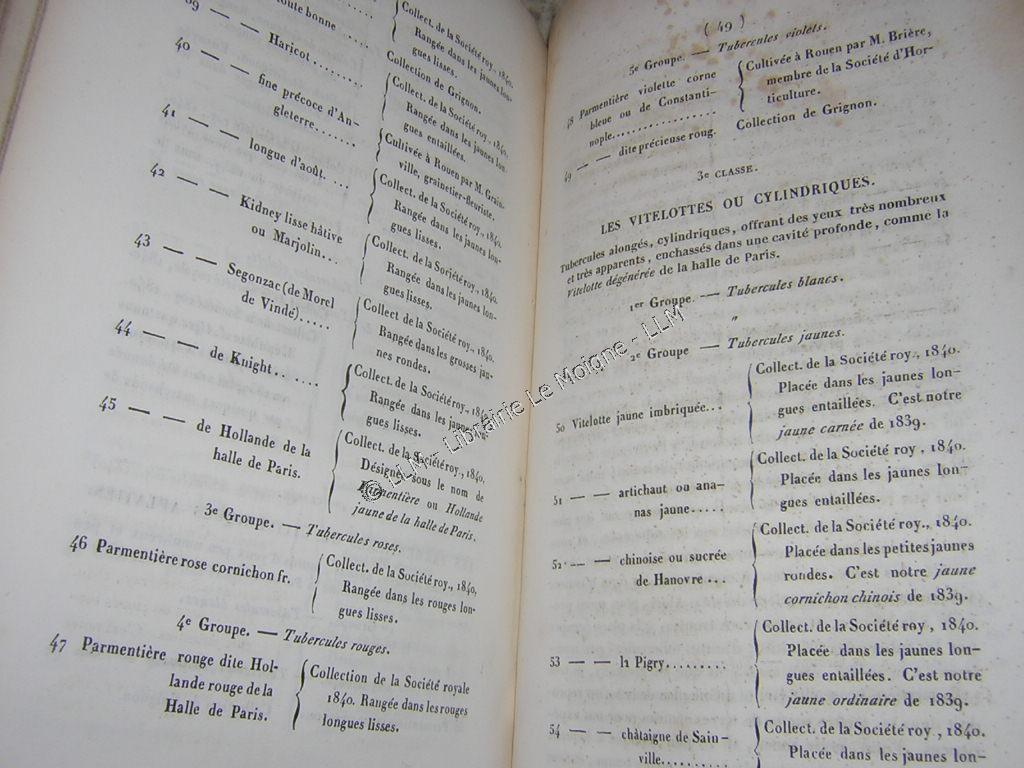 toute bonne
Collect. de la Société roy., 1840.
Rangée dans les jaunes lon-
gues lisses.
39 — — Haricot ........
Collection de Grignon.
40 — — fine précoce d'An-
gleterre......
Collect. de la Société roy., 1840.
Rangée dans les jaunes lon-
gues entaillées.
41 — — longue d'août. ...
Cultivée à Rouen par M. Grain-
ville, grainetier-fleuriste.
42 — — Kidney lisse hâtive
ou Marjolin...
Collect. de la Société roy., 1840.
Rangée dans les jaunes lon-
gues lisses.
43 — — Segonzac (de Morel
de Vindé).....
Collect. de la Société roy., 1840.
Rangée dans les jaunes lon-
gues lisses.
44 — — de Knight.. .....
Collect. de la Société roy., 1840.
Rangée dans les grosses jau-
nes rondes.
45 — — de Hollande de la
halle de Paris.
Collect. de la Société roy., 1840.
Rangée dans les jaunes lon-
gues lisses.
Collect. de la Société roy., 1840.
Désignée sous le nom de
Parmentière ou Hollande
jaune de la halle de Paris.
3e Groupe. — Tubercules roses.
46 Parmentière rose cornichon fr.
Collect. de la Société roy., 1840,
Rangée dans les rouges lon-
gues lisses.
4e Groupe. — Tubercules rouges.
47 Parmentière rouge dite Hol-
lande rouge de la
Halle de Paris.
Collection de la Société royale
1840. Rangée dans les rouges
longues lisses.
( 49 )
5e Groupe. — Tubercules violets.
48 Parmentière violette corne
bleue ou de Constanti-
nople...............
Cultivée à Rouen par M. Brière,
membre de la Société d'Hor-
ticulture.
49 — — dite précieuse roug.
Collection de Grignon.
3e CLASSE.
LES VITELOTTES OU CYLINDRIQUES.
Tubercules alongés, cylindriques, offrant des yeux très nombreux
et très apparents, enchassés dans une cavité profonde, comme la
Vitelotte dégénérée de la halle de Paris.
1er Groupe. — Tubercules blancs.
"
2e Groupe — Tubercules jaunes.
50 Vitelotte jaune imbriquée...
Collect. de la Société roy., 1840.
Placée dans les jaunes lon-
gues entaillées. C'est notre
jaune carnée de 1839.
51 — — artichaut ou ana-
nas jaune.....
Collect. de la Société roy, 1840.
Placée dans les jaunes lon-
gues entaillées.
52 — — chinoise ou sucrée
de Hanovre ...
Collect. de la Société roy., 1840.
Placée dans les petites jaunes
rondes. C'est notre jaune
cornichon chinois de 1839.
53 — — la Pigry.........
Collect. de la Société roy, 1840.
Placée dans les jaunes lon-
gues entaillées. C'est notre
jaune ordinaire de 1839.
54 — — châtaigne de Sain-
ville.....
Collect. de la Société roy., 1840.
Placée dans les jaunes lon-
© LLM - Librairie Le Moigne - LLM